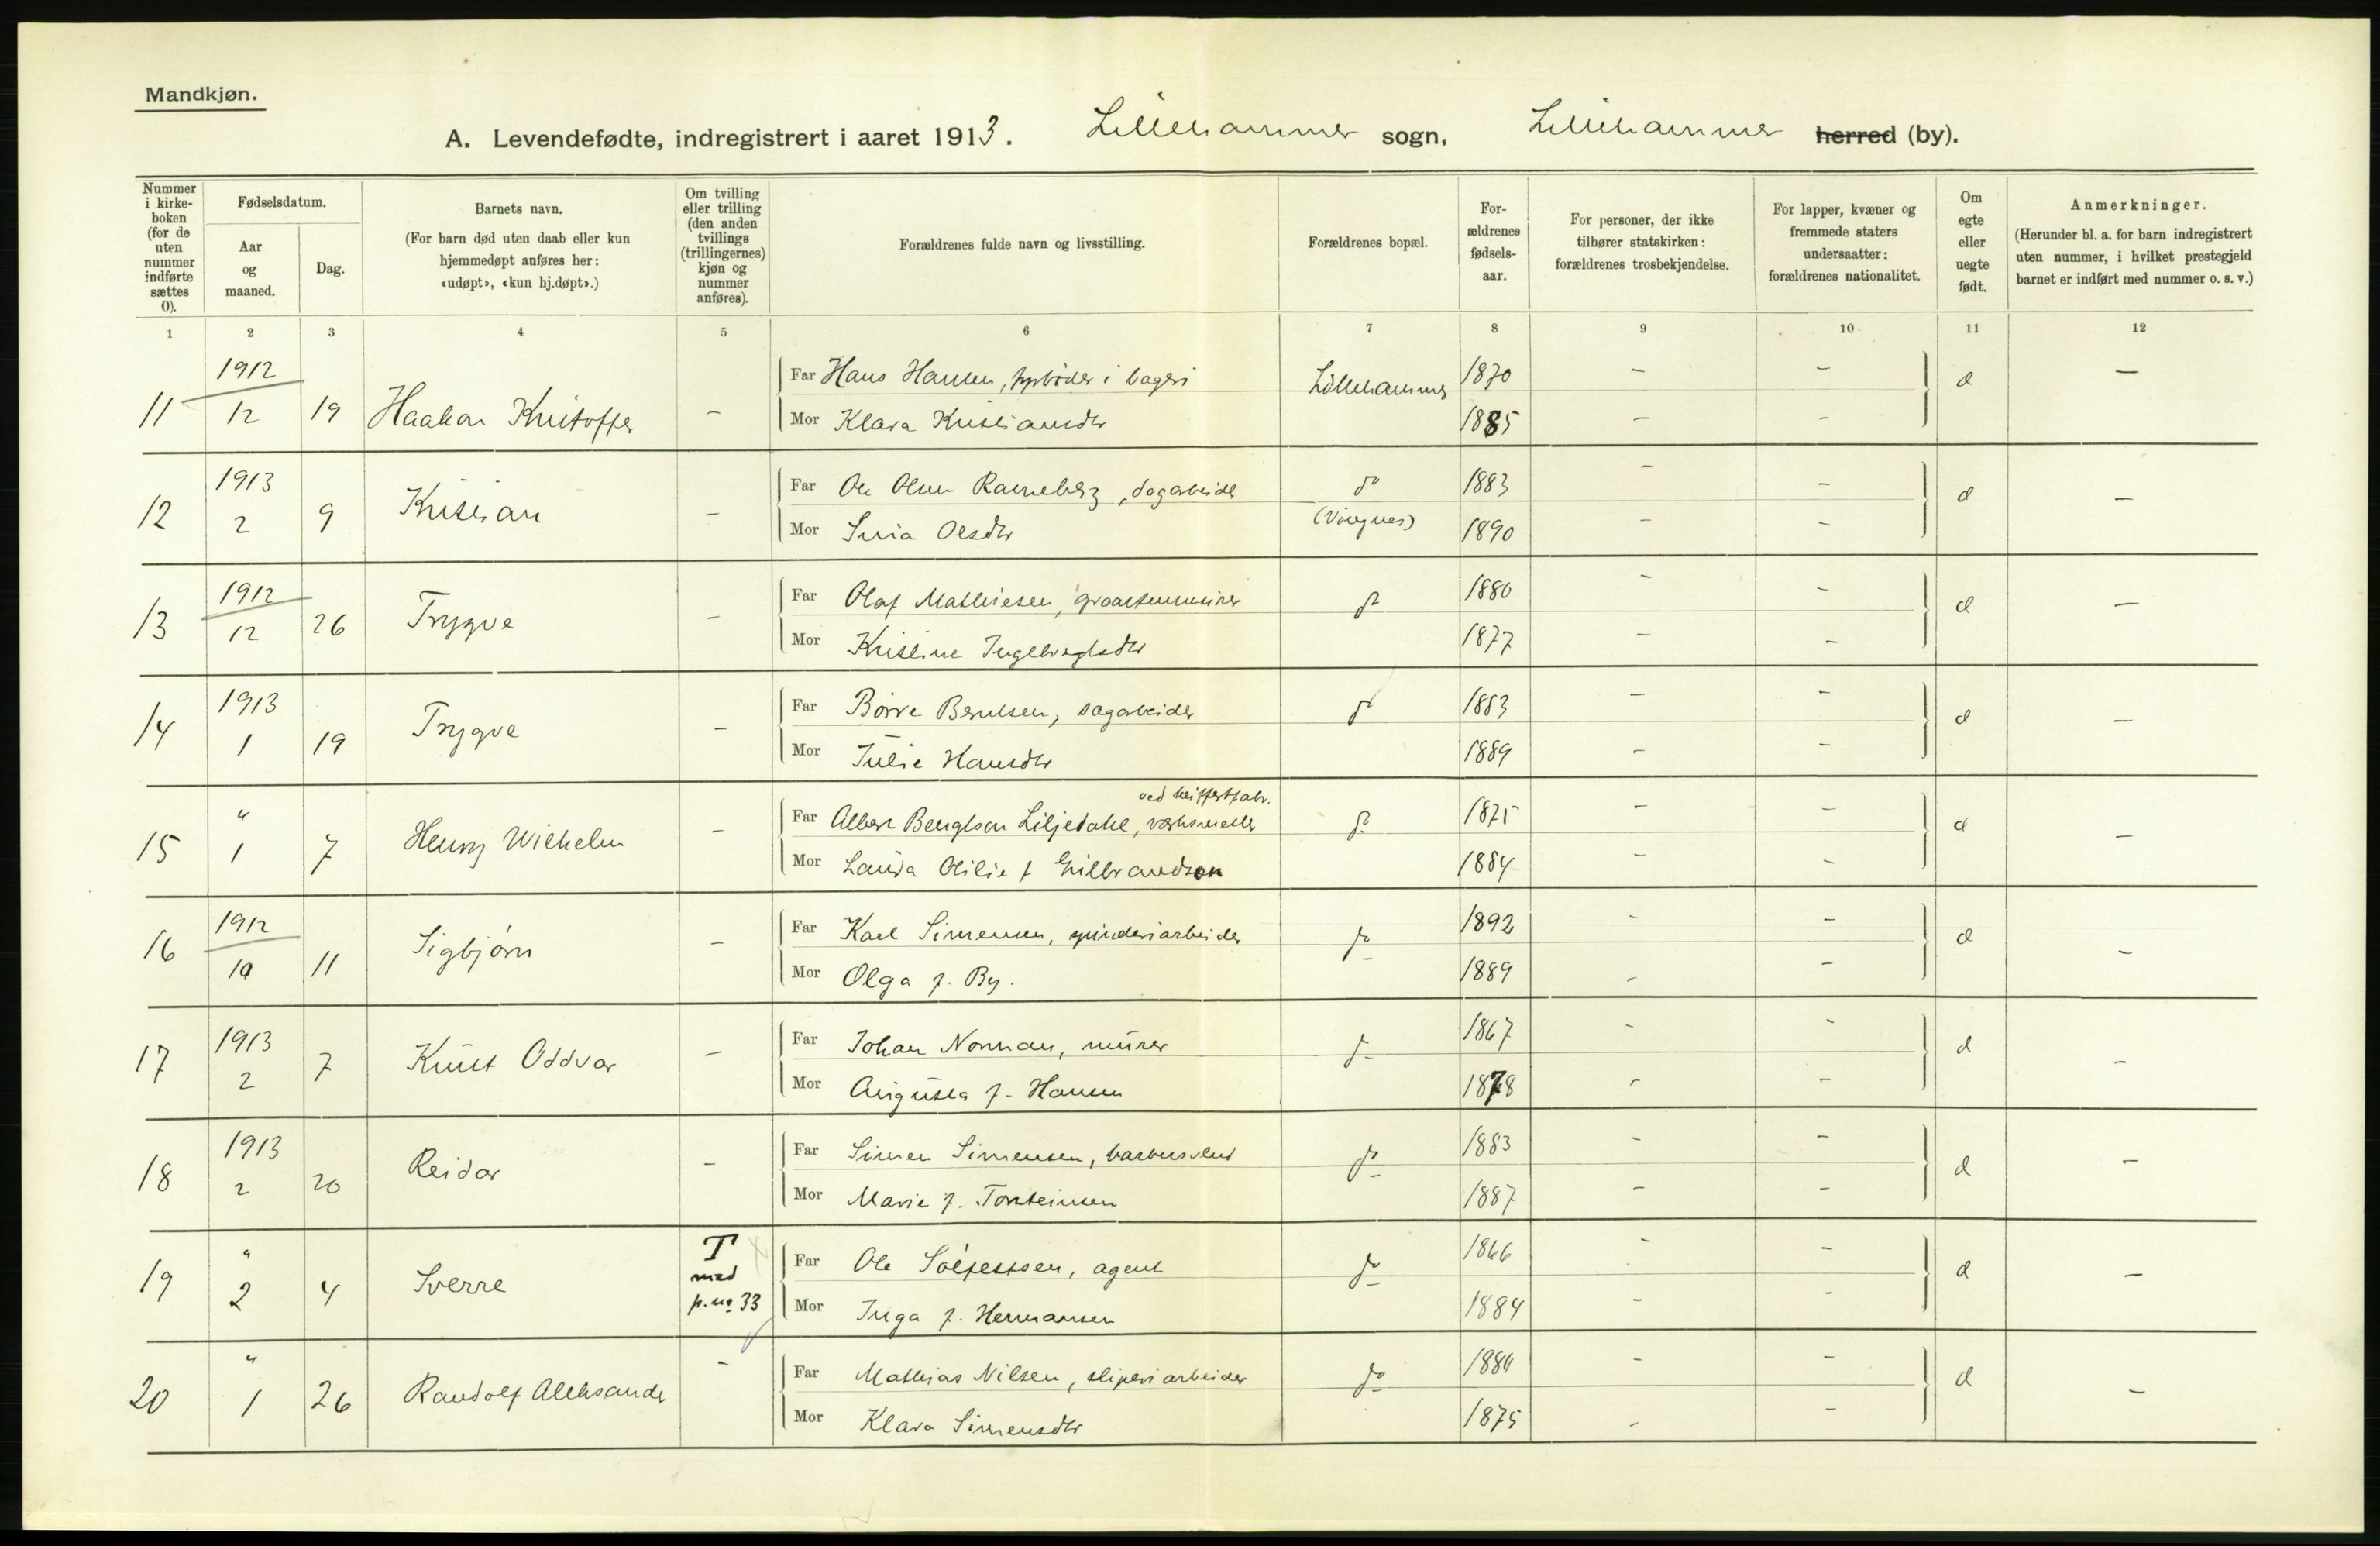 Mandkjøn.
A. Levendefødte, indregistrert i aaret 1913. Lillehammer sogn, Lillehammer herred (by).
Nummer i kirke-boken (for de uten nummer indførte sættes 0).
Fødselsdatum.
Aar og maaned.
Dag.
Barnets navn.
(For barn død uten daab eller kun hjemmedøpt anføres her: «udøpt», «kun hj.døpt».)
Om tvilling eller trilling (den anden tvillings (trillingernes) kjøn og nummer anføres).
Forældrenes fulde navn og livsstilling.
Forældrenes bopæl.
For-ældrenes fødsels-aar.
For personer, der ikke tilhører statskirken: forældrenes trosbekjendelse.
For lapper, kvæner og fremmede staters undersaatter: forældrenes nationalitet.
Om egte eller uegte født.
Anmerkninger.
(Herunder bl. a. for barn indregistrert uten nummer, i hvilket prestegjeld barnet er indført med nummer o. s. v.)
1 2 3 4 5 6 7 8 9 10 11 12
11 1912 12 19 Haakon Kristoffer – Far Hans Hansen, i bageri Lillehammer 1870 – – –
Mor Klara Kristiansdtr 1885 – –
12 1913 2 9 Kristian – Far Ole Olsen Ramneberg, dagarbeider do 1883 – – –
Mor Olsdtr (Vingnes) 1890 – –
13 1912 12 26 Trygve – Far Olaf Mathiesen, do 1880 – – –
Mor Kristine Ingebrigtsdtr 1877 – –
14 1913 1 19 Trygve – Far Børre Berntsen, sagarbeider do 1883 – – –
Mor Julie Hansdtr 1889 – –
15 " 1 7 Henry Wilhelm – Far Albert Bengtson Liljedahl, verksmester ved do 1875 – – –
Mor Otilie f Gulbrandson 1884 – –
16 1912 10 11 Sigbjørn – Far Karl Simensen, spinderiarbeider do 1892 – – –
Mor Olga f. By. 1889 – –
17 1913 2 7 Knut Oddvar – Far Johan Norman, murer do 1867 – – –
Mor Augusta f. Hansen 1878 – –
18 1913 2 20 Reidar – Far Simen Simensen, barbersvend do 1883 – – –
Mor Marie f. Torsteinsen 1887 – –
19 " 2 4 Sverre T med p. no 33 Far Ole agent do 1866 – – –
Mor Inga f. Hermansen 1884 – –
20 " 1 26 Randolf Aleksander – Far Mathias Nilsen, sliperiarbeider do 1880 – – –
Mor Klara Simensdtr 1875 – –